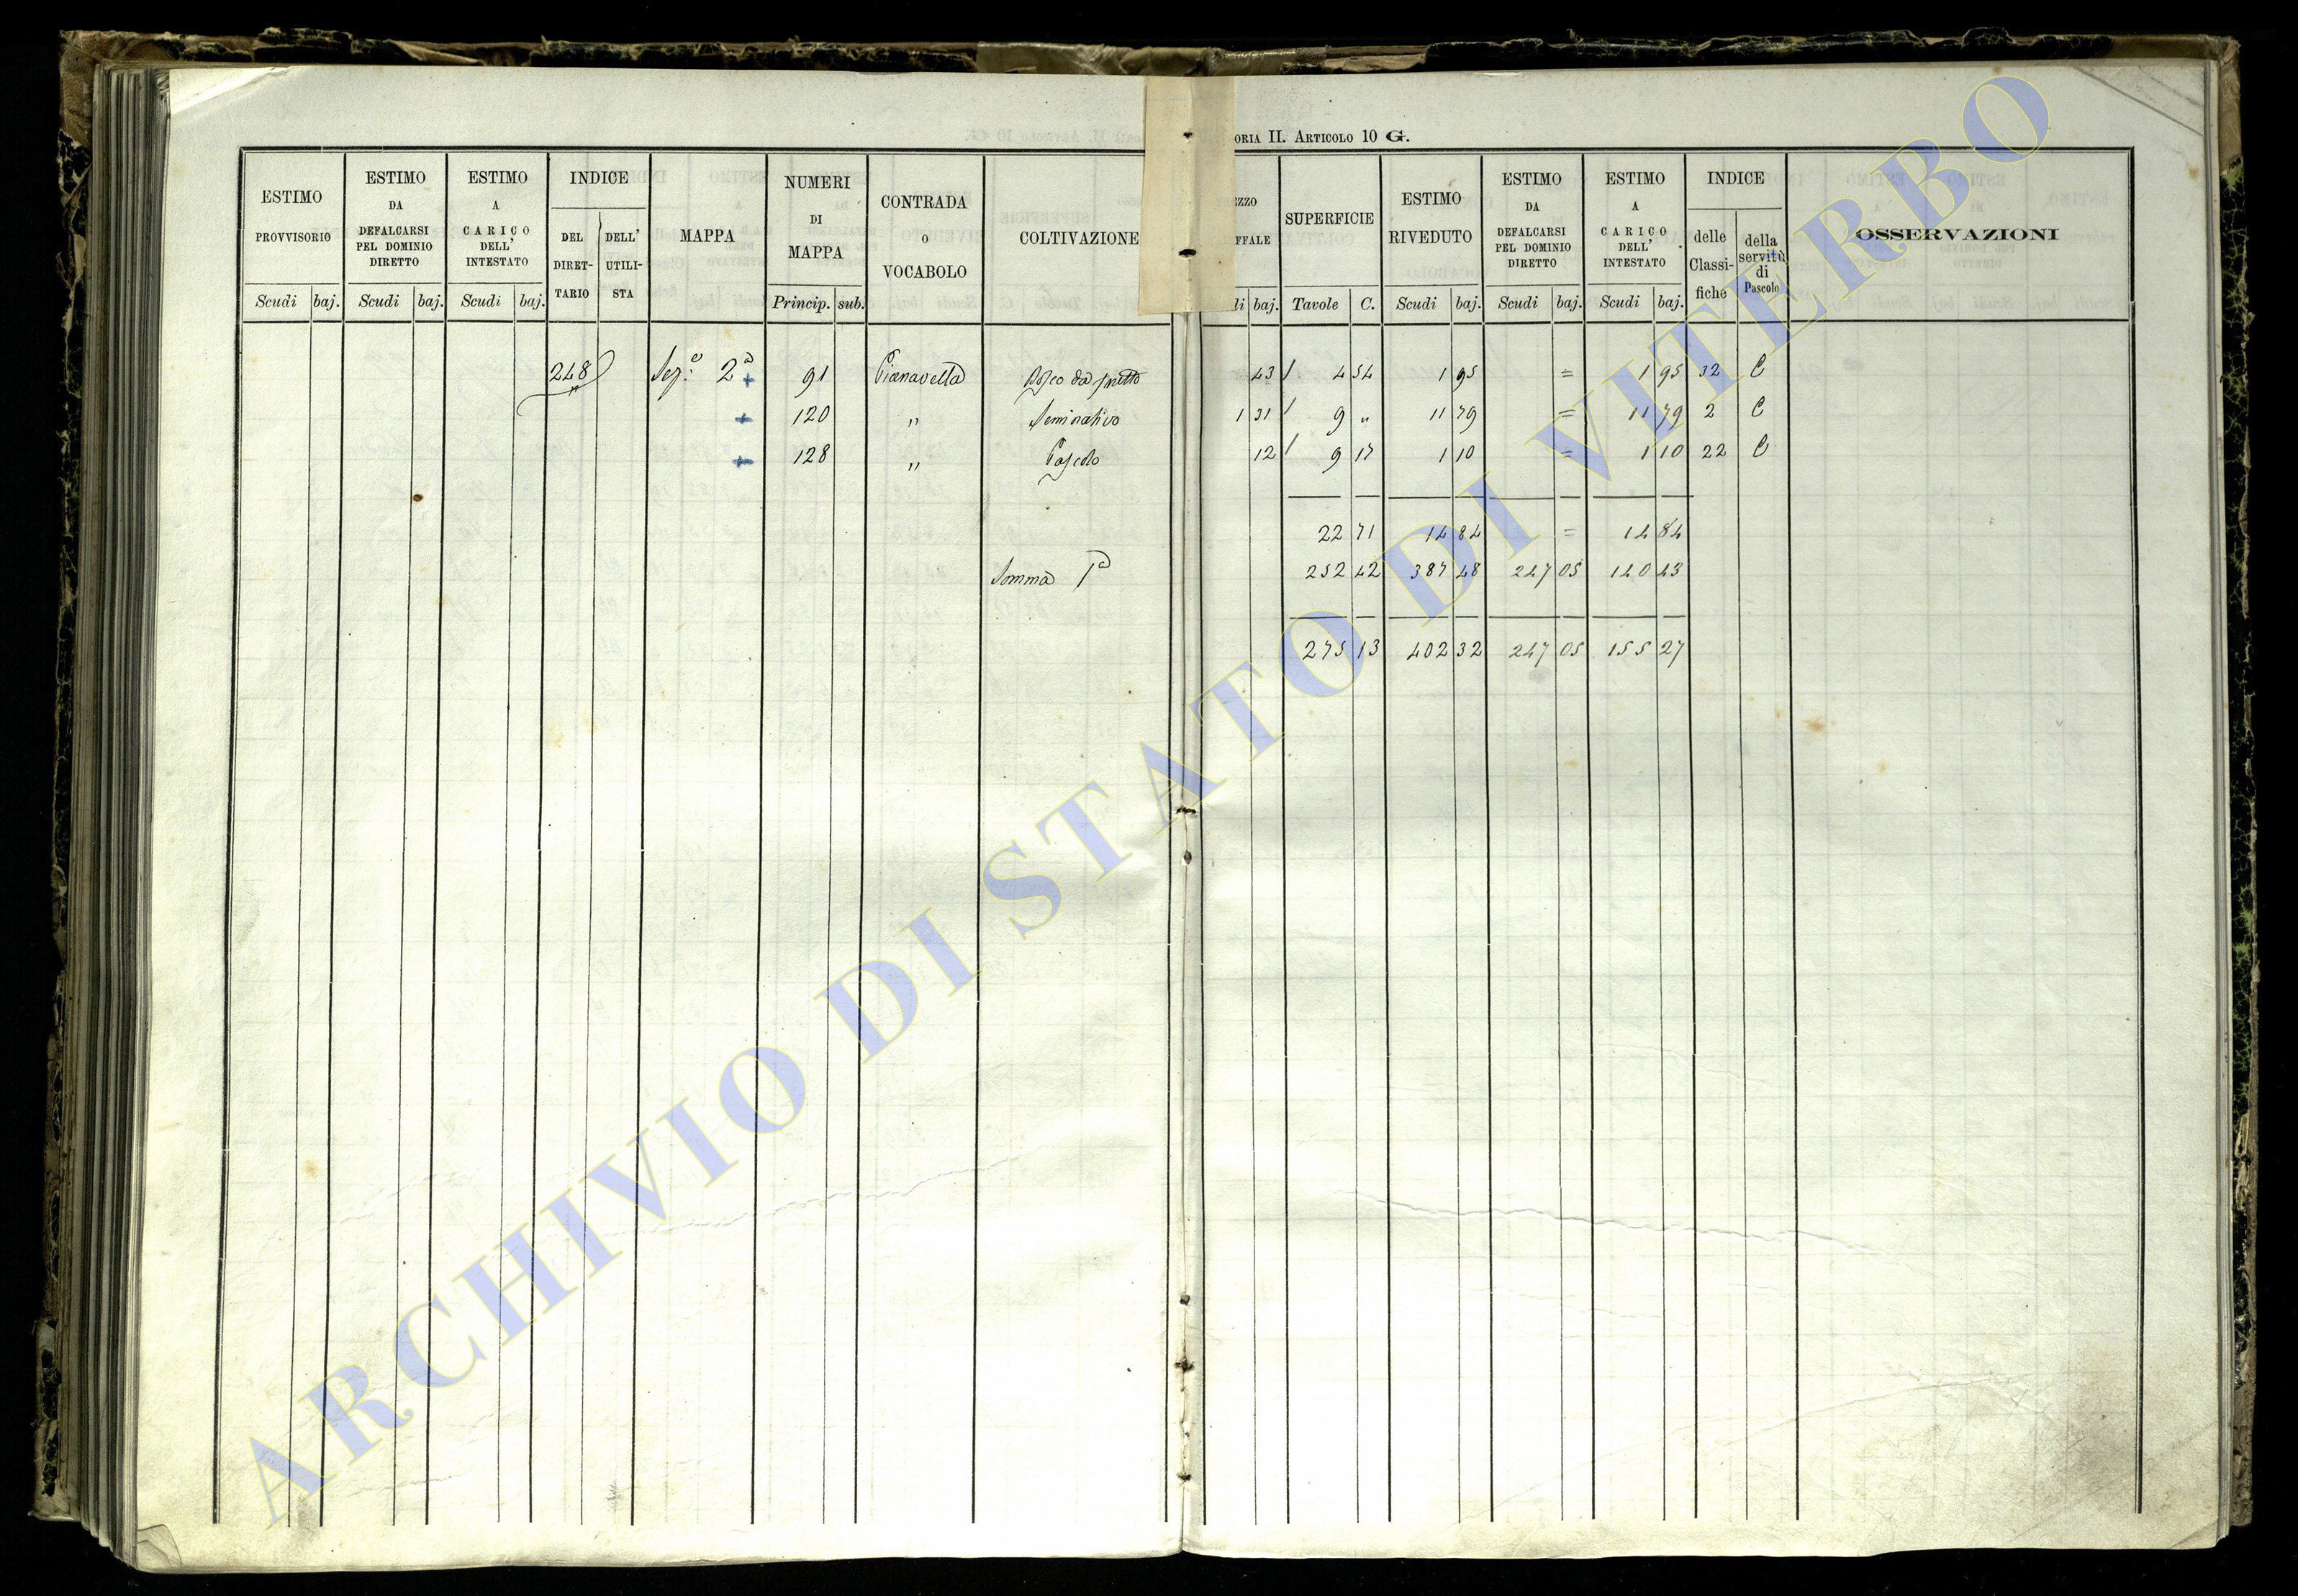 ORIA II. ARTICOLO 10 G.
ESTIMO PROVVISORIO
ESTIMO DA DEFALCARSI PEL DOMINIO DIRETTO
ESTIMO A CARICO DELL' INTESTATO
INDICE
DEL DIRET-TARIO
DELL' UTILI-STA
MAPPA
NUMERI DI MAPPA
CONTRADA O VOCABOLO
COLTIVAZIONE
EZZO
FFALE
SUPERFICIE
ESTIMO RIVEDUTO
ESTIMO DA DEFALCARSI PEL DOMINIO DIRETTO
ESTIMO A CARICO DELL' INTESTATO
INDICE
delle Classi-fiche
della servitù di Pascolo
OSSERVAZIONI
Scudi baj. Scudi baj. Scudi baj. Princip. sub. li baj. Tavole C. Scudi baj. Scudi baj. Scudi baj.
248 Sez.e 2a 91 Pianavella Bosco da frutto 43 4 54 1 95 = 1 95 32 C
120 " Seminativo 1 31 9 " 11 79 = 11 79 2 C
128 " Pascolo 12 9 17 1 10 = 1 10 22 C
22 71 14 84 = 14 84
Somma Pa 252 42 387 48 247 05 140 43
275 13 402 32 247 05 155 27
ARCHIVIO DI STATO DI VITERBO